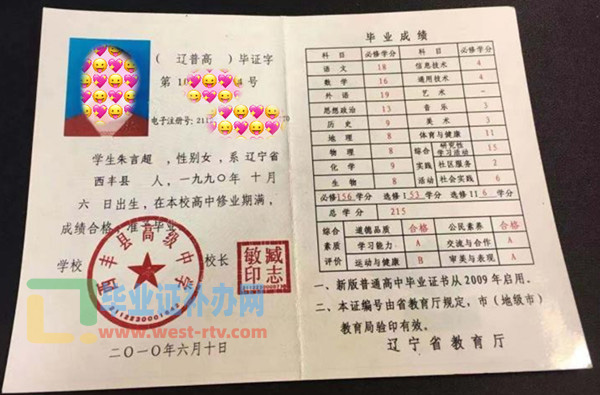 （ 辽普高 ）毕证字
第 10 4号
电子注册号：211
学生朱言超 ，性别女，系 辽宁省
西丰县 人，一九九〇年 十月
六 日出生，在本校高中修业期满，
成绩合格，准予毕业
学校 校长
西丰县高级中学
臧志敏印
毕业证补办网
www.west-rtv.com
二〇一〇年六月十日
毕业成绩
科 目 必修学分 科 目 必修学分
语 文 18 信息技术 4
数 学 16 通用技术 4
外 语 19 艺 术 -
思想政治 13 音 乐 3
历 史 9 美 术 3
地 理 8 体育与健康 11
物 理 8 综合 研究性学习活动 15
化 学 9 实践 社区服务 2
生 物 8 活动 社会实践 6
必修156 学分 选修Ⅰ53 学分 选修ⅠⅠ6 学分
总 学 分 215
综合 道德品质 合格 公民素养 合格
素质 学习能力 A 交流与合作 A
评价 运动与健康 B 审美与表现 A
一、新版普通高中毕业证书从2009年启用。
二、本证编号由省教育厅规定，市（地级市）
教育局验印有效。
辽宁省教育厅